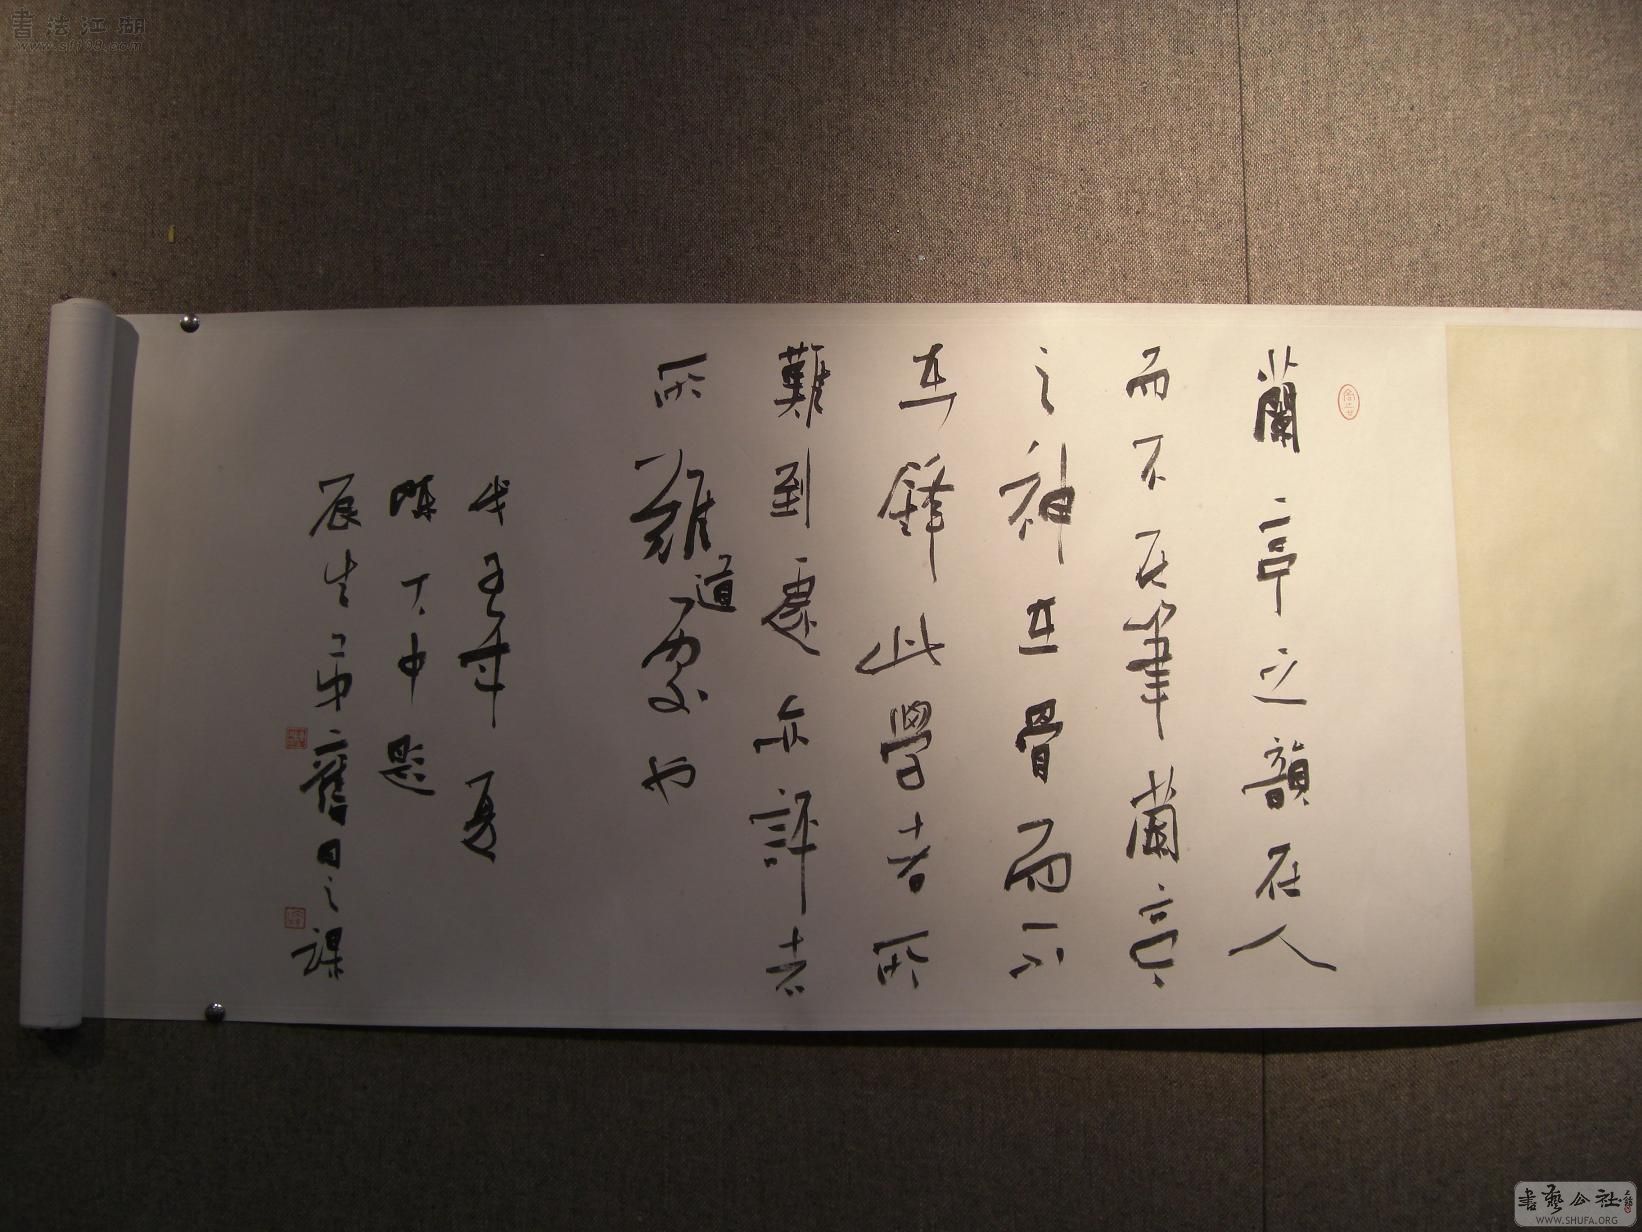 蘭亭之韻在人
而不在筆蘭亭
之神在骨而不
在鋒此學者所
難到處亦評者
所難道處也
戊子年夏
陳丁中題
辰生弟舊日之課
書法江湖
www.sf108.com
書藝公社
WWW.SHUFA.ORG